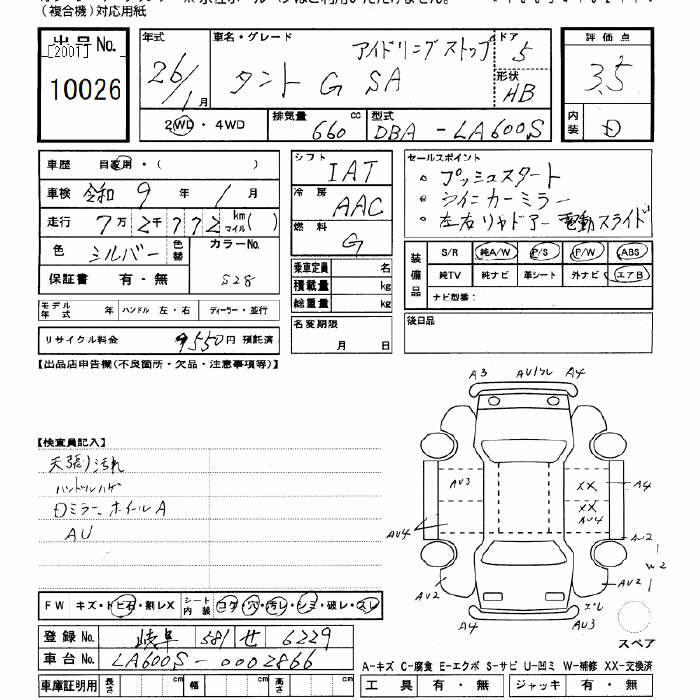 (複合機)対応用紙
出品No. [2001] 10026
年式 26/1月
車名・グレード アイドリングストップ タント G SA
ドア 5
形状 HB
2WD・4WD
排気量 660 cc
型式 DBA-LA600S
評価点 3.5
内装 D
車歴 自家用・( )
車検 令和 9年 1月
走行 7万2千772 km マイル( )
色 シルバー 色替
カラーNo. S28
保証書 有・無
シフト IAT
冷房 AAC
燃料 G
乗車定員 名
積載量 kg
総重量 kg
名変期限 月 日
セールスポイント
。プッシュスタート
。ウィンカーミラー
。左右リヤドアー電動スライド
装備品 S/R 純A/W P/S P/W ABS
純TV 純ナビ 革シート 外ナビ エアB
ナビ型番:( )
後日品
モデル年式 年 ハンドル 左・右 ディーラー・並行
リサイクル料金 9550円 預託済
【出品店申告欄(不良箇所・欠品・注意事項等)】
【検査員記入】
天張り汚れ
ハンドルハゲ
Dミラー、ホイールA
AU
A3 AU/ワレ A4
AU3 XX A4
XX AU4
AU4 AU2
W2
AU2 AU2
A4 AU3
スペア
FW キズ・トビ石・割レX シート内装 コゲ・穴・汚レ・シミ・破レ・スレ
登録No. 岐阜 581 せ 6229
車台No. LA600S-0002866
A-キズ C-腐食 E-エクボ S-サビ U-凹ミ W-補修 XX-交換済
車庫証明用 長さ cm 幅 cm 高さ cm
工具 有・無 ジャッキ 有・無